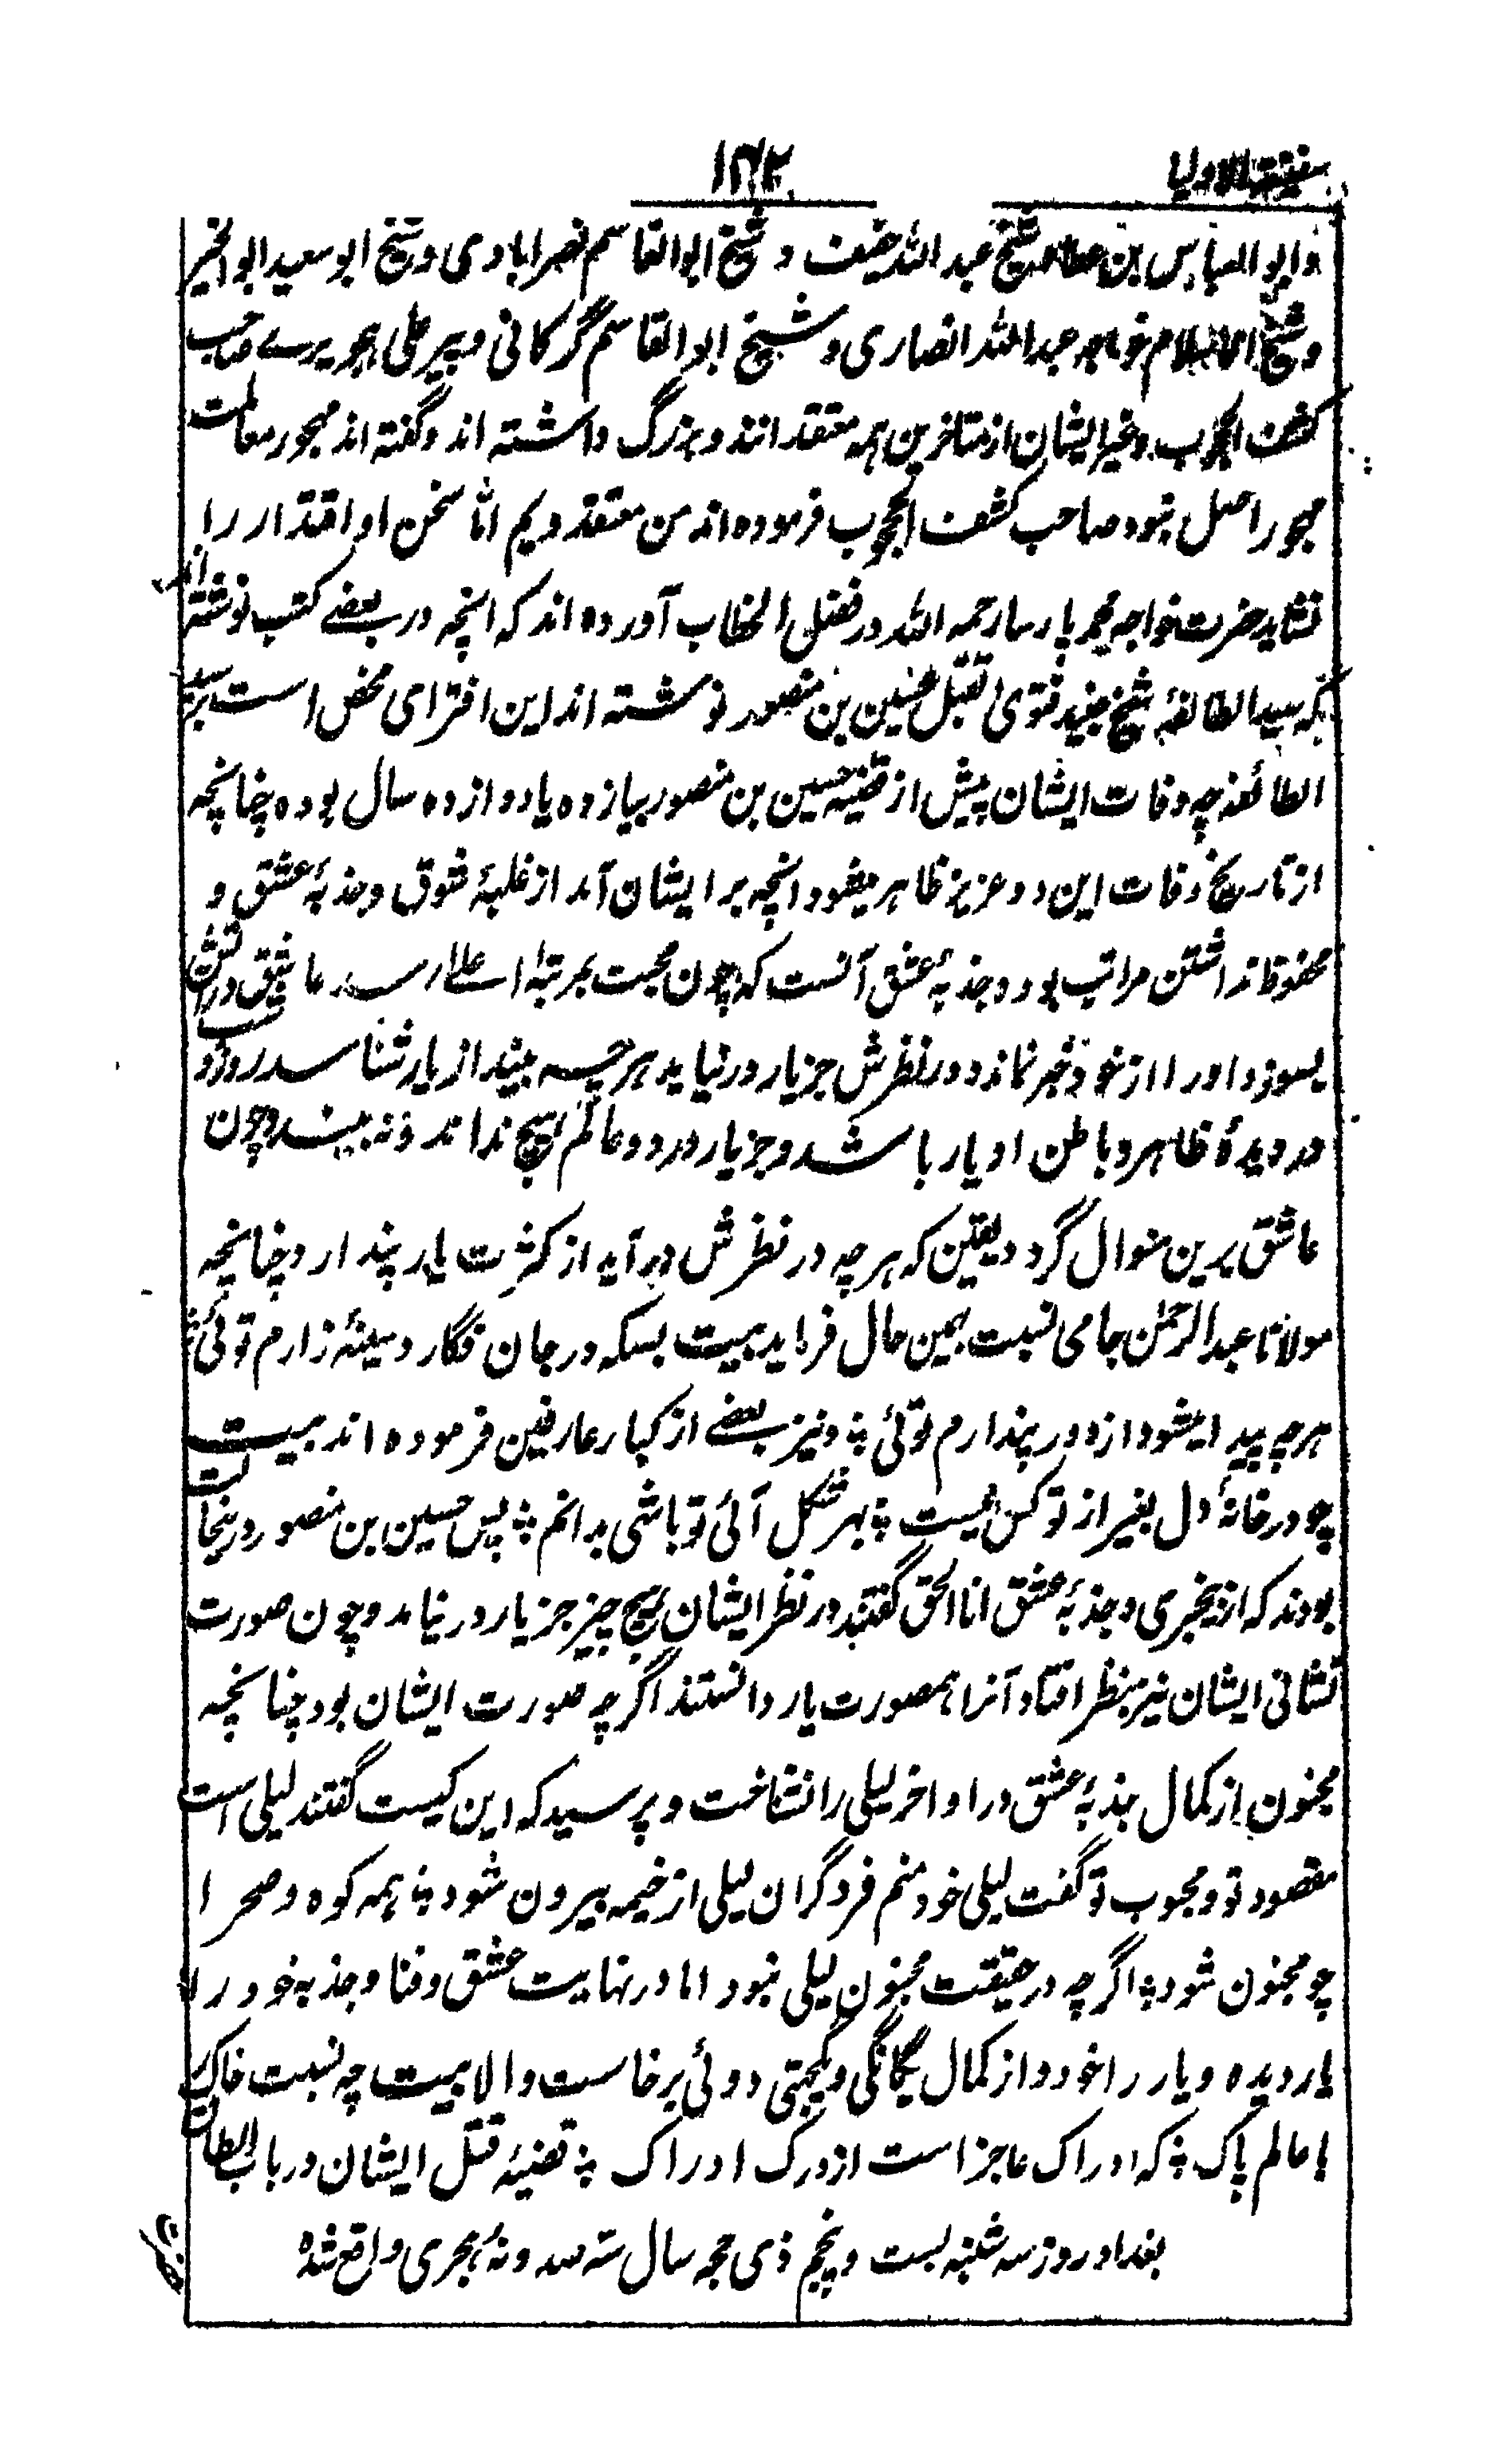 سفینة الاولیا
وابو العباس بن عطا و شیخ عبد الله خفیف و شیخ ابو القاسم نصرابادی و شیخ ابو سعید ابو الخیر
و شیخ الاسلام خواجه عبد الله انصاری و شیخ ابو القاسم گرگانی و پیر علی هجویرے صاحب
کشف المحجوب وغیر ایشان از متاخرین همه معتقد انند و بزرگ داشته اند و گفته اند مهجور معاملت
مهجور اصل نبود صاحب کشف المحجوب فرموده اند من معتقد ویم اما سخن او اقتدار را
نشاید حضرت خواجه محمد پارسا رحمه الله در فصل الخطاب آورده اند که انچه در بعضے کتب نوشته اند
که سید الطائفه شیخ جنید فتوی بقتل حسین بن منصور نوشته اند این افترای محض است بر سید
الطائفه چه وفات ایشان پیش از قضیه حسین بن منصور بیازده یا دوازده سال بوده چنانچه
از تاریخ وفات این دو عزیز ظاهر میشود انچه بر ایشان آمد از غلبۀ شوق و جذبۀ عشق و
محفوظ نداشتن مراتب بود و جذبۀ عشق آنست که چون محبت بمرتبۀ اعلے رسد عاشق در آتش عشق
بسوزد و اورا از خود خبر نماند و در نظرش جز یار در نیاید هر چه بیند از یار شناسد روز و
در دیدۀ ظاهر و باطن او یار باشد و جز یار در دو عالم هیچ نداند و نه بیند و چون
عاشق برین منوال گردد یقین که هر چه در نظرش در آید از کثرت یار پندارد چنانچه
مولانا عبد الرحمٰن جامی نسبت بهمین حال فرماید بیت بسکه در جان فگار و سینۀ زارم توئی ؛
هر چه پیدا میشود از دور پندارم توئی ؛ و نیز بعضے از کبار عارفین فرموده اند بیت
چو در خانۀ دل بغیر از تو کس نیست ؛ بهر شکل آئی تو باشی بدانم ؛ پس حسین بن منصور در ینحالت
بودند که از بیخبری و جذبۀ عشق انا الحق گفتند در نظر ایشان هیچ چیز جز یار در نیامد و چون صورت
نشانی ایشان نیز بنظر افتاد آنرا همصورت یار دانستند اگر چه صورت ایشان بود چنانچه
مجنون از کمال جذبۀ عشق در اواخر لیلی را نشناخت و پرسید که این کیست گفتند لیلی است
مقصود تو و محبوب تو گفت لیلی خود منم فرد گران لیلی از خیمه بیرون شود ؛ همه کوه و صحرا
چو مجنون شود ؛ اگر چه در حقیقت مجنون لیلی نبود اما در نهایت عشق و فنا و جذبه خود را
یار دیده و یار را خود و از کمال یگانگی و یکجهتی دوئی برخاست والا بیت چه نسبت خاک را
با عالم پاک ؛ که ادراک عاجز است از درک ادراک ؛ قضیۀ قتل ایشان در باب الطاق
بغداد روز سه شنبه بست و پنجم ذی حجه سال سه صد و نه هجری واقع شده